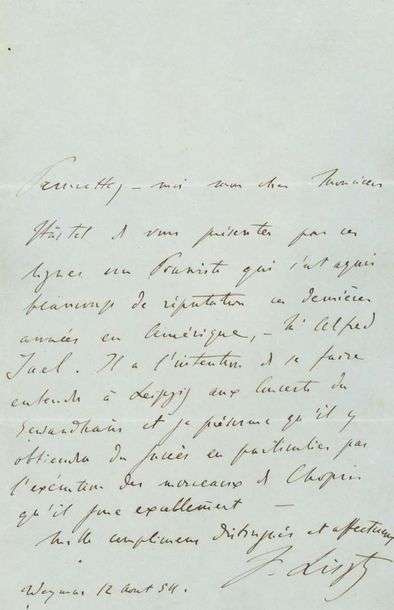 Permettez-moi mon cher Monsieur
Härtel de vous présenter par ces
lignes un Pianiste qui s'est acquis
beaucoup de réputation ces dernières
années en Amérique, – Mr Alfred
Jael. Il a l'intention de se faire
entendre à Leipzig aux Concerts du
Gewandhaus et je présume qu'il y
obtiendra du succès en particulier par
l'exécution des morceaux de Chopin
qu'il joue excellement –
Mille complimens distingués et affectueux
F. Liszt
Weymar 12 Aout 54.